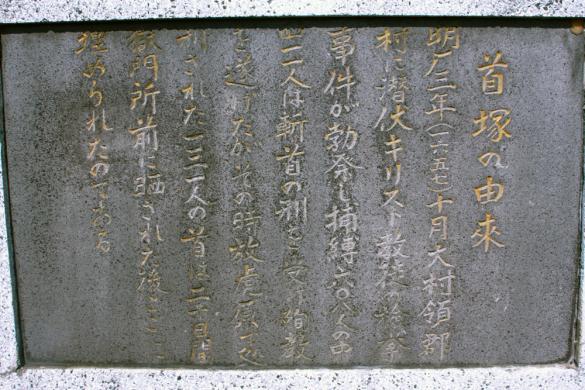 首塚の由來
明厂三年(一六五七)十月大村領郡
村に潜伏キリスト教徒の検挙
事件が勃発し捕縛六〇八人の中
一人は斬首の刑を受け殉教
を遂げたがその時放虎原で処
刑された一三一人の首は二十日間
獄門所前に晒された後ここに
埋められたのである